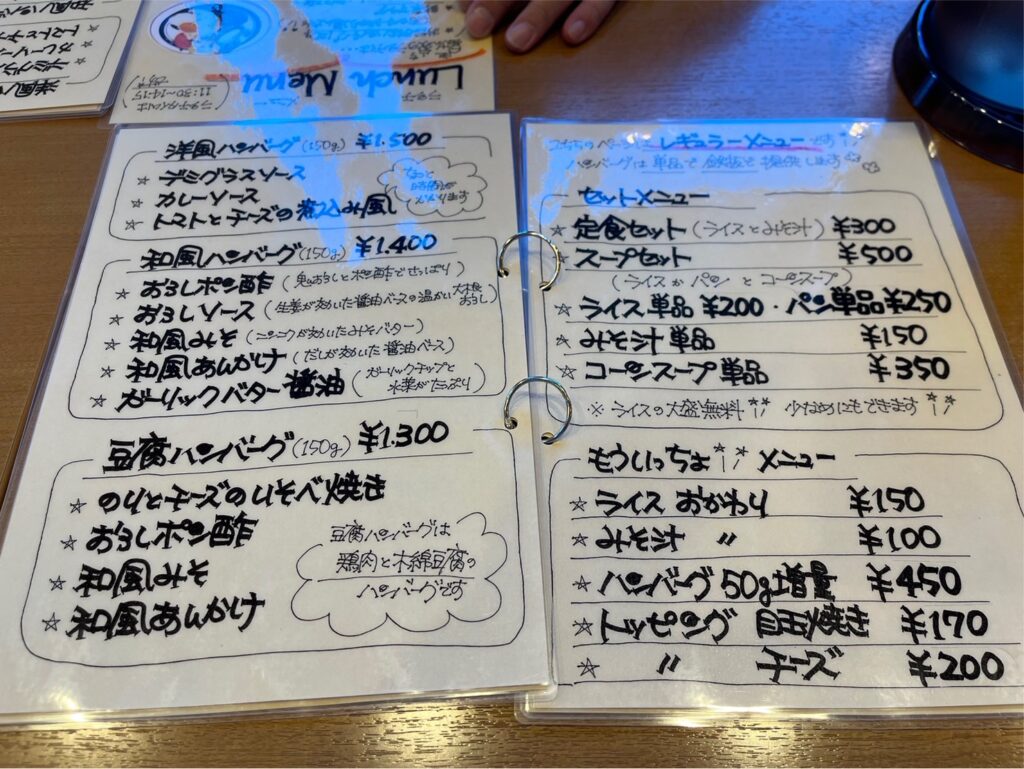 Lunch Menu
メニュー
11:30~14:15
洋風ハンバーグ(150g) ¥1.500
☆ デミグラスソース
☆ カレーソース
☆ トマトとチーズの煮込み風
ちょっと
時間が
かかります
和風ハンバーグ(150g) ¥1.400
☆ おろしポン酢(鬼おろしとポン酢でさっぱり)
☆ おろしソース(生姜が効いた醤油ベースの温かい大根おろし)
☆ 和風みそ(ニンニクが効いたみそバター)
☆ 和風あんかけ(だしが効いた醤油ベース)
☆ ガーリックバター醤油(ガーリックチップと水菜がたっぷり)
豆腐ハンバーグ(150g) ¥1.300
☆ のりとチーズのいそべ焼き
☆ おろしポン酢
☆ 和風みそ
☆ 和風あんかけ
豆腐ハンバーグは
鶏肉と木綿豆腐の
ハンバーグです
こちらのページは レギュラーメニューです!!
ハンバーグは単品で鉄板で提供します
セットメニュー
☆ 定食セット(ライスとみそ汁) ¥300
☆ スープセット ¥500
(ライスかパン と コーンスープ)
☆ ライス単品 ¥200・パン単品 ¥250
☆ みそ汁単品 ¥150
☆ コーンスープ単品 ¥350
※ライスの大盛無料!! 少なめにもできます!!
もういっちょ!! メニュー
☆ ライスおかわり ¥150
☆ みそ汁 〃 ¥100
☆ ハンバーグ50g増量 ¥450
☆ トッピング 目玉焼き ¥170
☆ 〃 チーズ ¥200